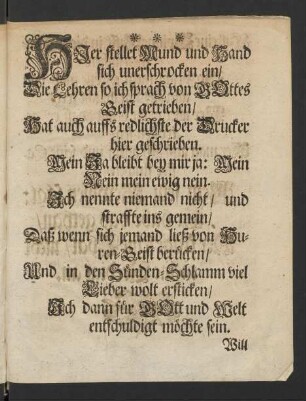 * * *
HIer stellet Mund und Hand
sich unerschrocken ein/
Die Lehren so ich sprach von GOttes
Geist getrieben/
Hat auch auffs redlichste der Drucker
hier geschrieben.
Mein Ja bleibt bey mir ja: Mein
Nein mein ewig nein.
Ich nennte niemand nicht/ und
straffte ins gemein/
Daß wenn sich jemand ließ von Hu-
ren-Geist berücken/
Und in den Sünden-Schlamm viel
lieber wolt ersticken/
Ich dann für GOtt und Welt
entschuldigt möchte sein.
Will